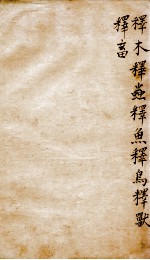 釋木釋蟲釋魚釋鳥釋獸
釋畜